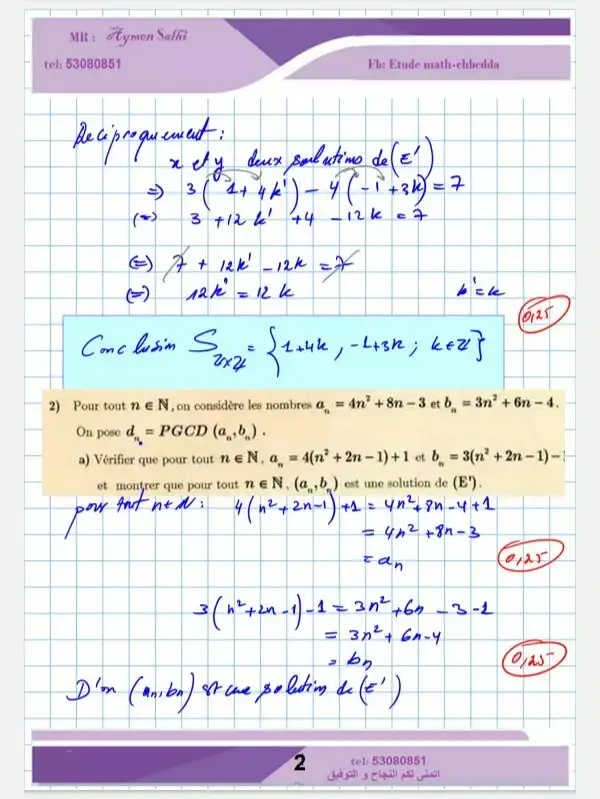 MR : Aymen Salhi
tel: 53080851
Fb: Etude math-chbedda
Reciproquement :
x et y deux solutions de (E')
=> 3(1+4k') - 4(-1+3k) = 7
(=) 3 +12k' +4 -12k = 7
(=) 7 + 12k' -12k = 7
(=) 12k' = 12k k'=k
0,25
Conclusion S ZxZ = {1+4k, -1+3k ; k∈Z}
2) Pour tout n ∈ ℕ, on considère les nombres aₙ = 4n² + 8n − 3 et bₙ = 3n² + 6n − 4.
On pose dₙ = PGCD (aₙ,bₙ) .
a) Vérifier que pour tout n ∈ ℕ, aₙ = 4(n² + 2n − 1) + 1 et bₙ = 3(n² + 2n − 1) −
et montrer que pour tout n ∈ ℕ, (aₙ,bₙ) est une solution de (E').
pour tout n∈N : 4(n²+2n-1)+1 = 4n²+8n-4+1
= 4n² +8n-3
= an
0,25
3(n²+2n-1)-1 = 3n²+6n -3-1
= 3n²+6n-4
= bn
0,25
D'où (an,bn) est une solution de (E')
2
tel: 53080851
اتمنى لكم النجاح و التوفيق